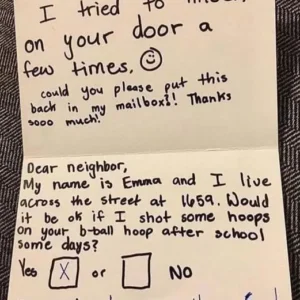 I tried to
on your door a
few times. ☺
could you please put this
back in my mailbox?! Thanks
sooo much!
Dear neighbor,
My name is Emma and I live
across the street at 1659. Would
it be ok if I shot some hoops
on your b-ball hoop after school
some days?
Yes X or NO